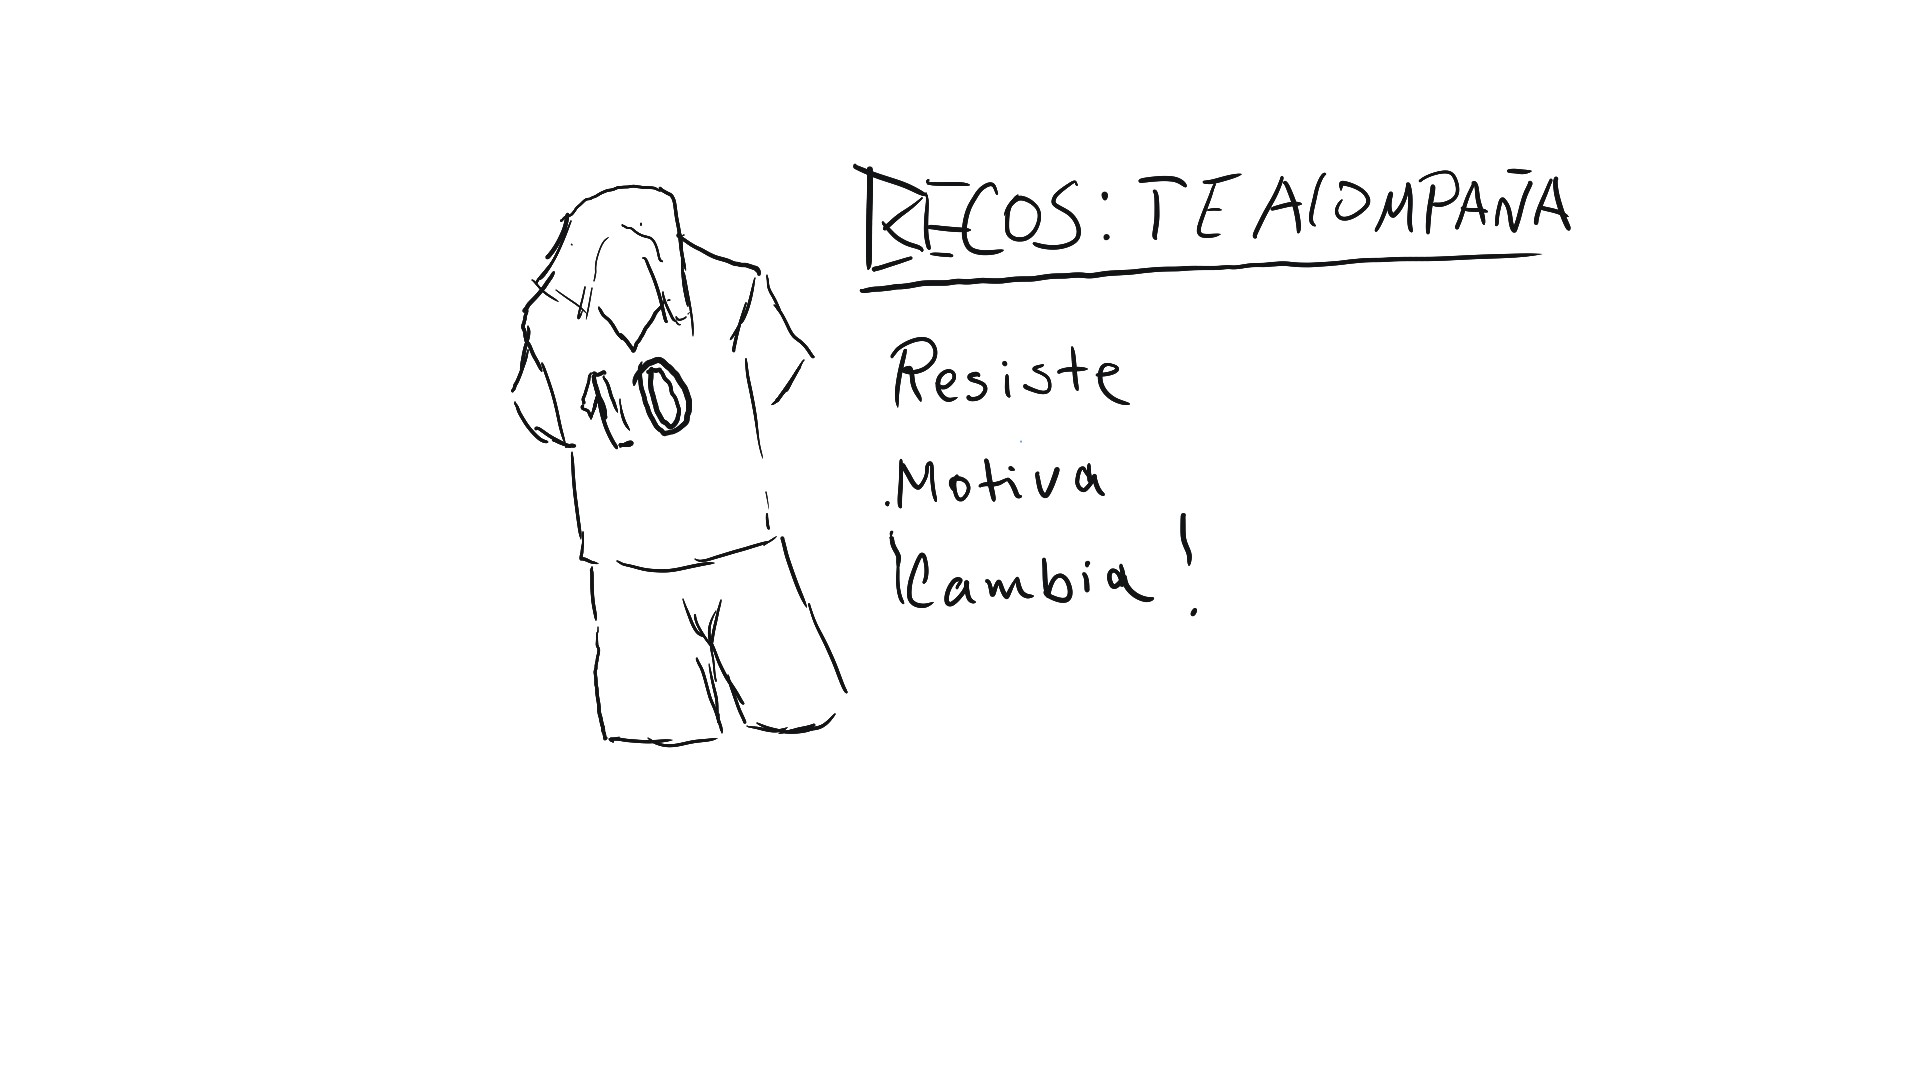 RECOS: TE ACOMPAÑA
10
Resiste
.Motiva
¡Cambia!